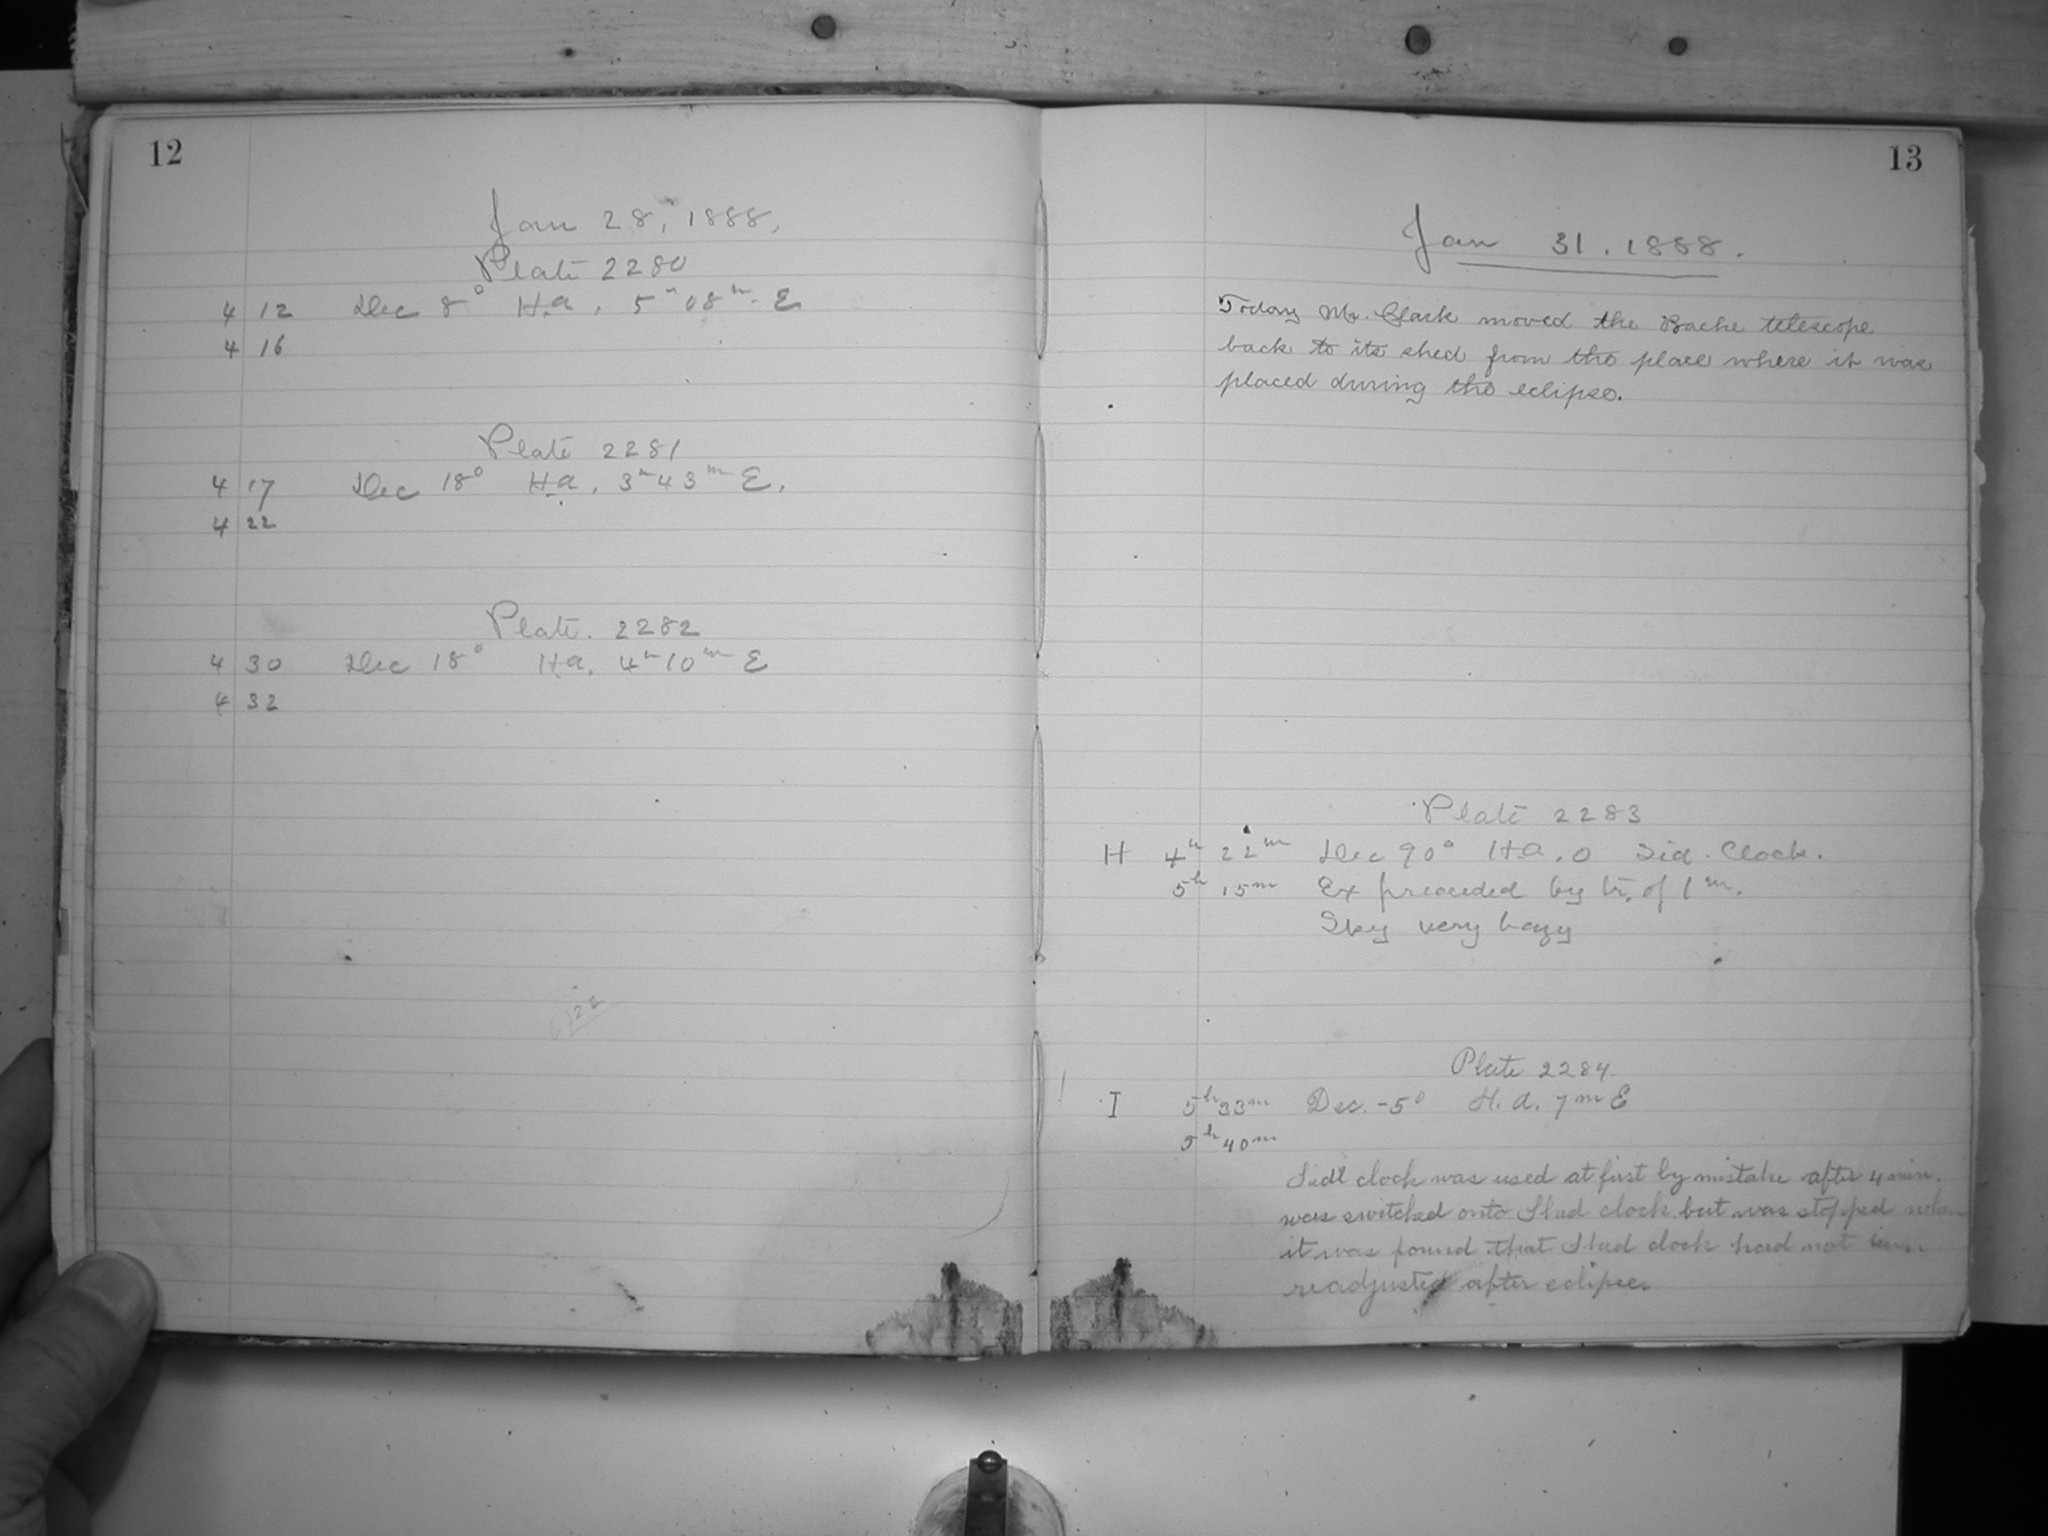 12
Jan 28, 1888,
Plate 2280
4 12 Dec 8° H.a. 5h 08m E
4 16
Plate 2281
4 17 Dec 18° H.a. 3h 43m E.
4 22
Plate. 2282
4 30 Dec 18° H.a. 4h 10m E
4 32
13
Jan 31. 1888.
Today Mr. Clark moved the Bache telescope
back to its shed from the place where it was
placed during the eclipse.
Plate 2283
H 4h 22m Dec 90° H.a. 0 Sid. Clock.
5h 15m Ex preceeded by tr. of 1m.
Sky very hazy
Plate 2284
I 5h 33m Dec. -5° H.a. 7m E
5h 40m
Sidl clock was used at first by mistake after 4 min.
was switched onto Slud clock but was stopped when
it was found that Slud clock had not been
readjusted after eclipse.